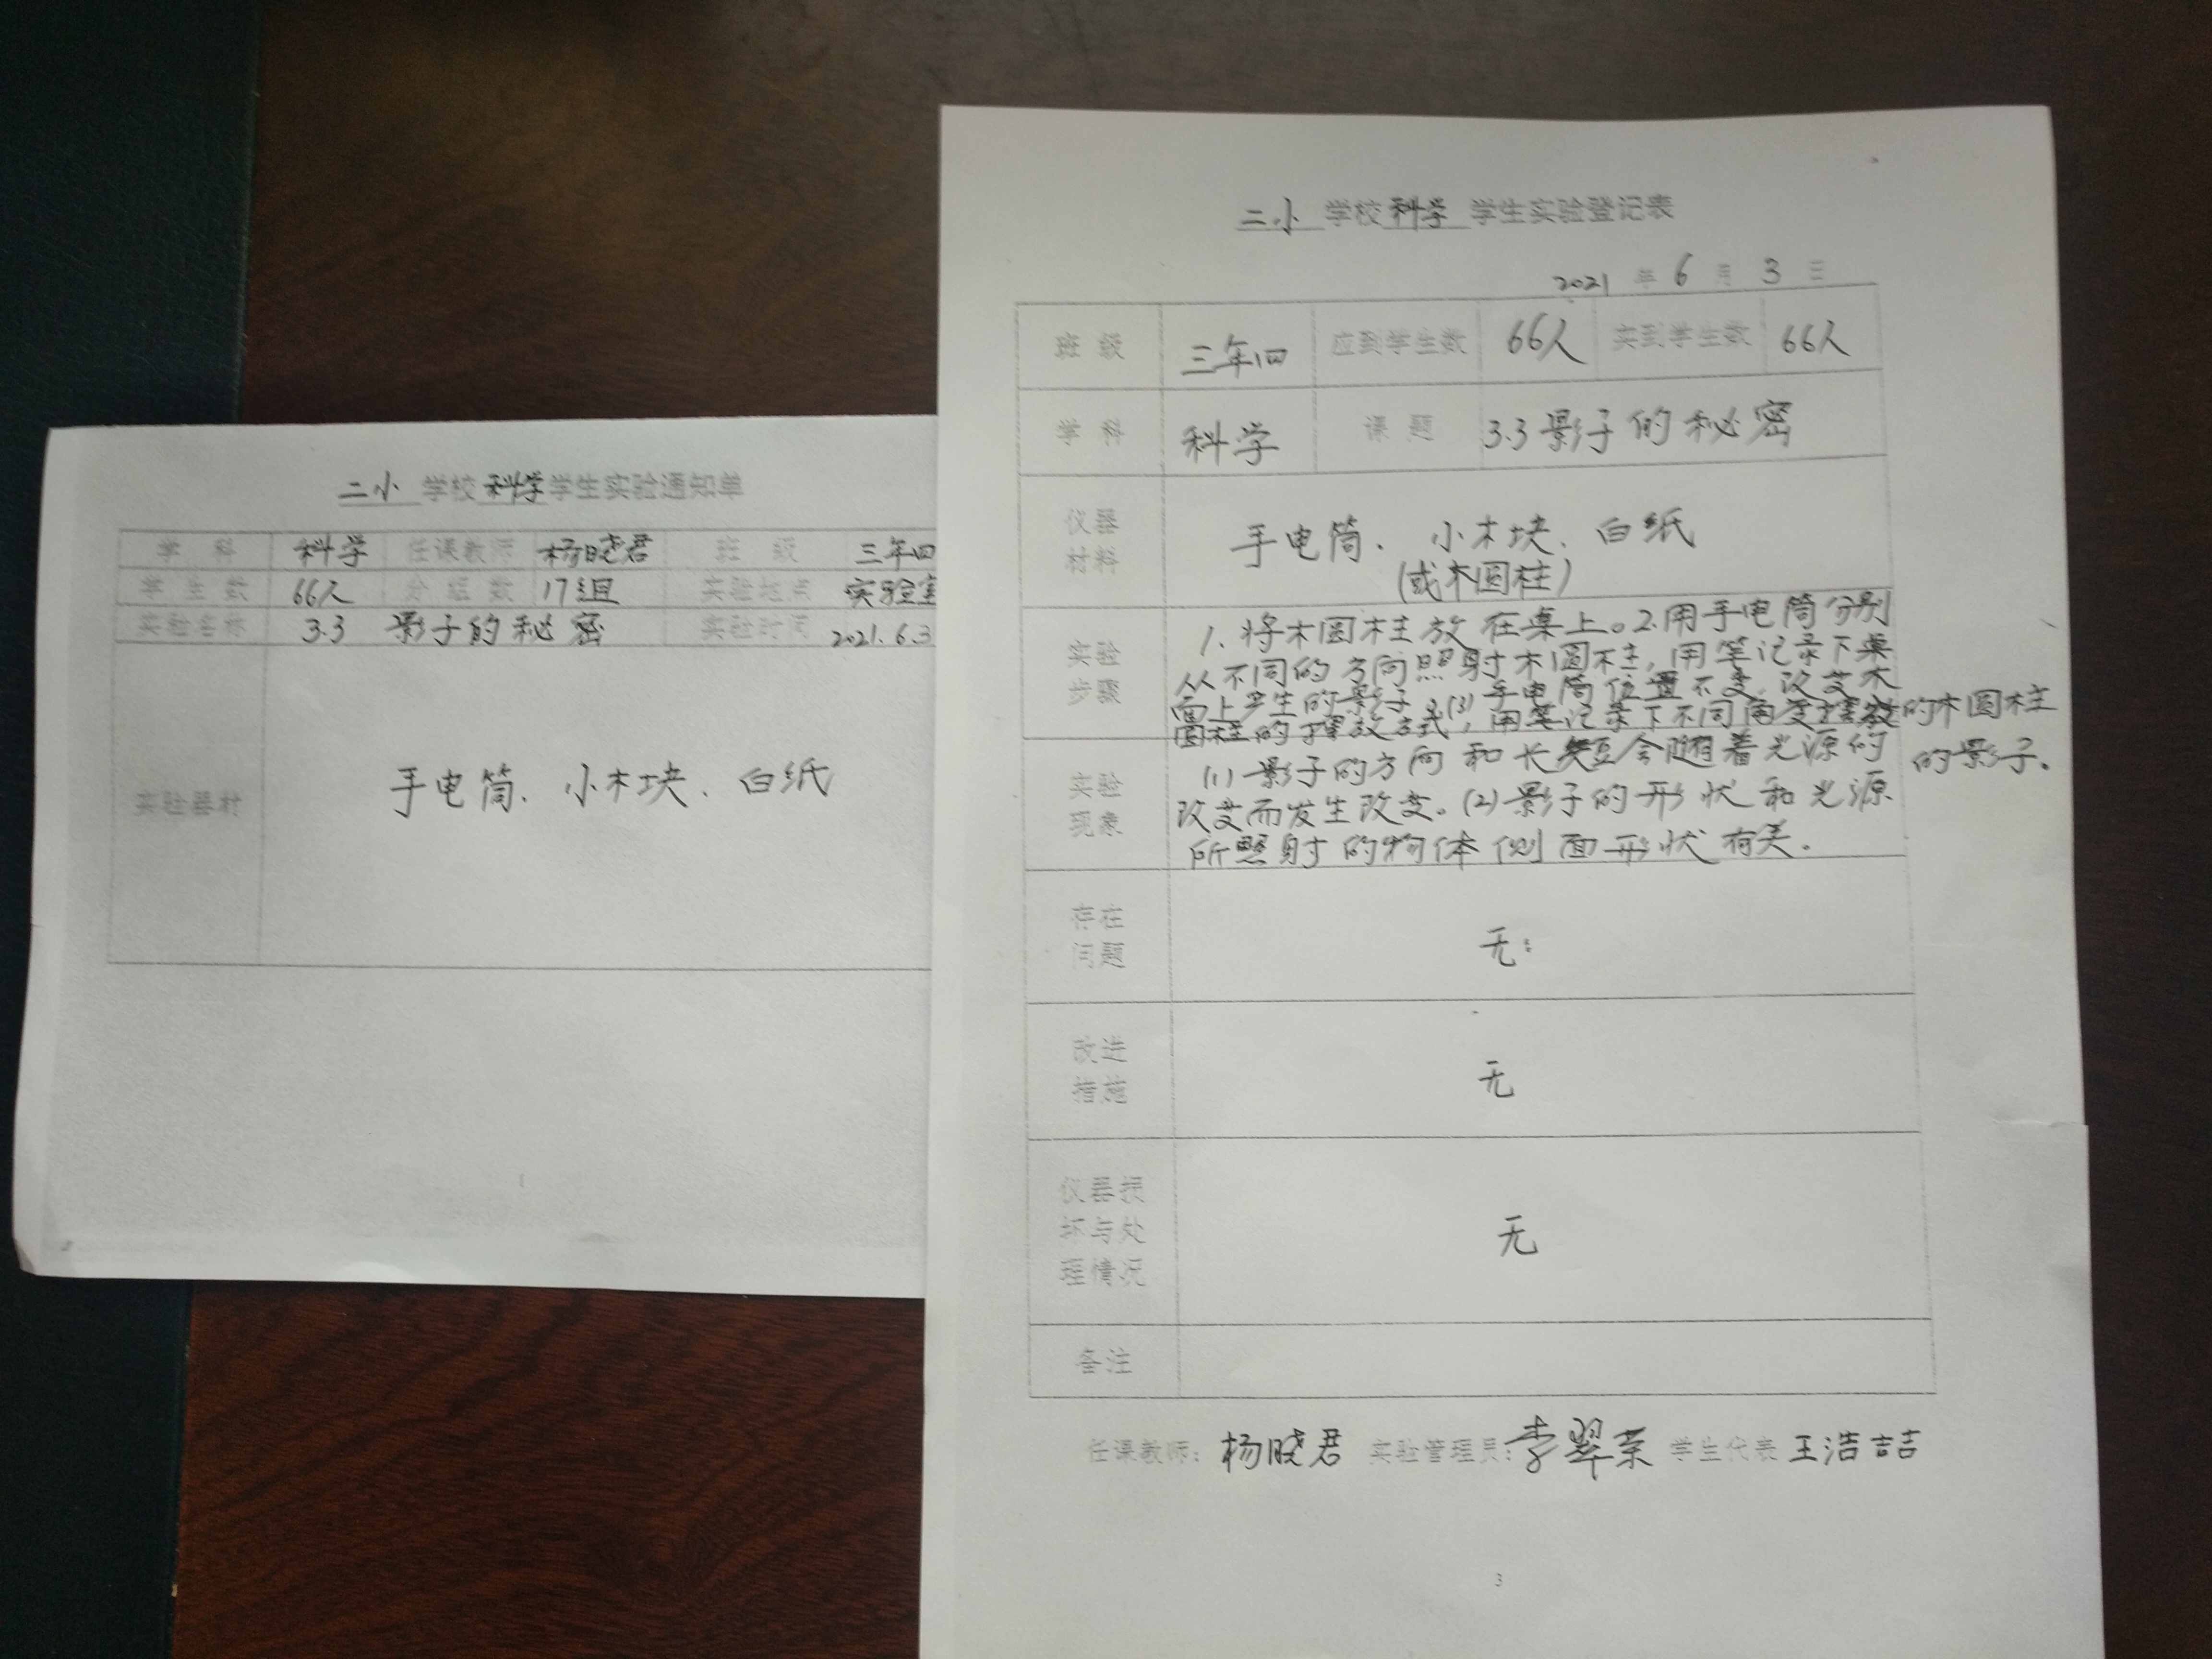 二小 学校 科学 学生实验通知单
学 科 科学 任课教师 杨晓君 班 级 三年四
学 生 数 66人 分 组 数 17组 实验地点 实验室
实验名称 3.3 影子的秘密 实验时间 2021.6.3
实验器材 手电筒、小木块、白纸
二小 学校 科学 学生实验登记表
2021 年 6 月 3 日
班 级 三年四 应到学生数 66人 实到学生数 66人
学 科 科学 课 题 3.3影子的秘密
仪器
材料
手电筒、小木块、白纸
(或木圆柱)
实验
步骤
1.将木圆柱放在桌上。2.用手电筒分别
从不同的方向照射木圆柱,用笔记录下桌
面上产生的影子。(3)手电筒位置不变,改变木
圆柱的摆放方式,用笔记录下不同角度摆放的木圆柱
的影子。
实验
现象
(1)影子的方向和长短会随着光源的
改变而发生改变。(2)影子的形状和光源
所照射的物体侧面形状有关.
存在
问题
无
改进
措施
无
仪器损
坏与处
理情况
无
备注
任课教师: 杨晓君 实验管理员: 李翠荣 学生代表 王浩喆
3